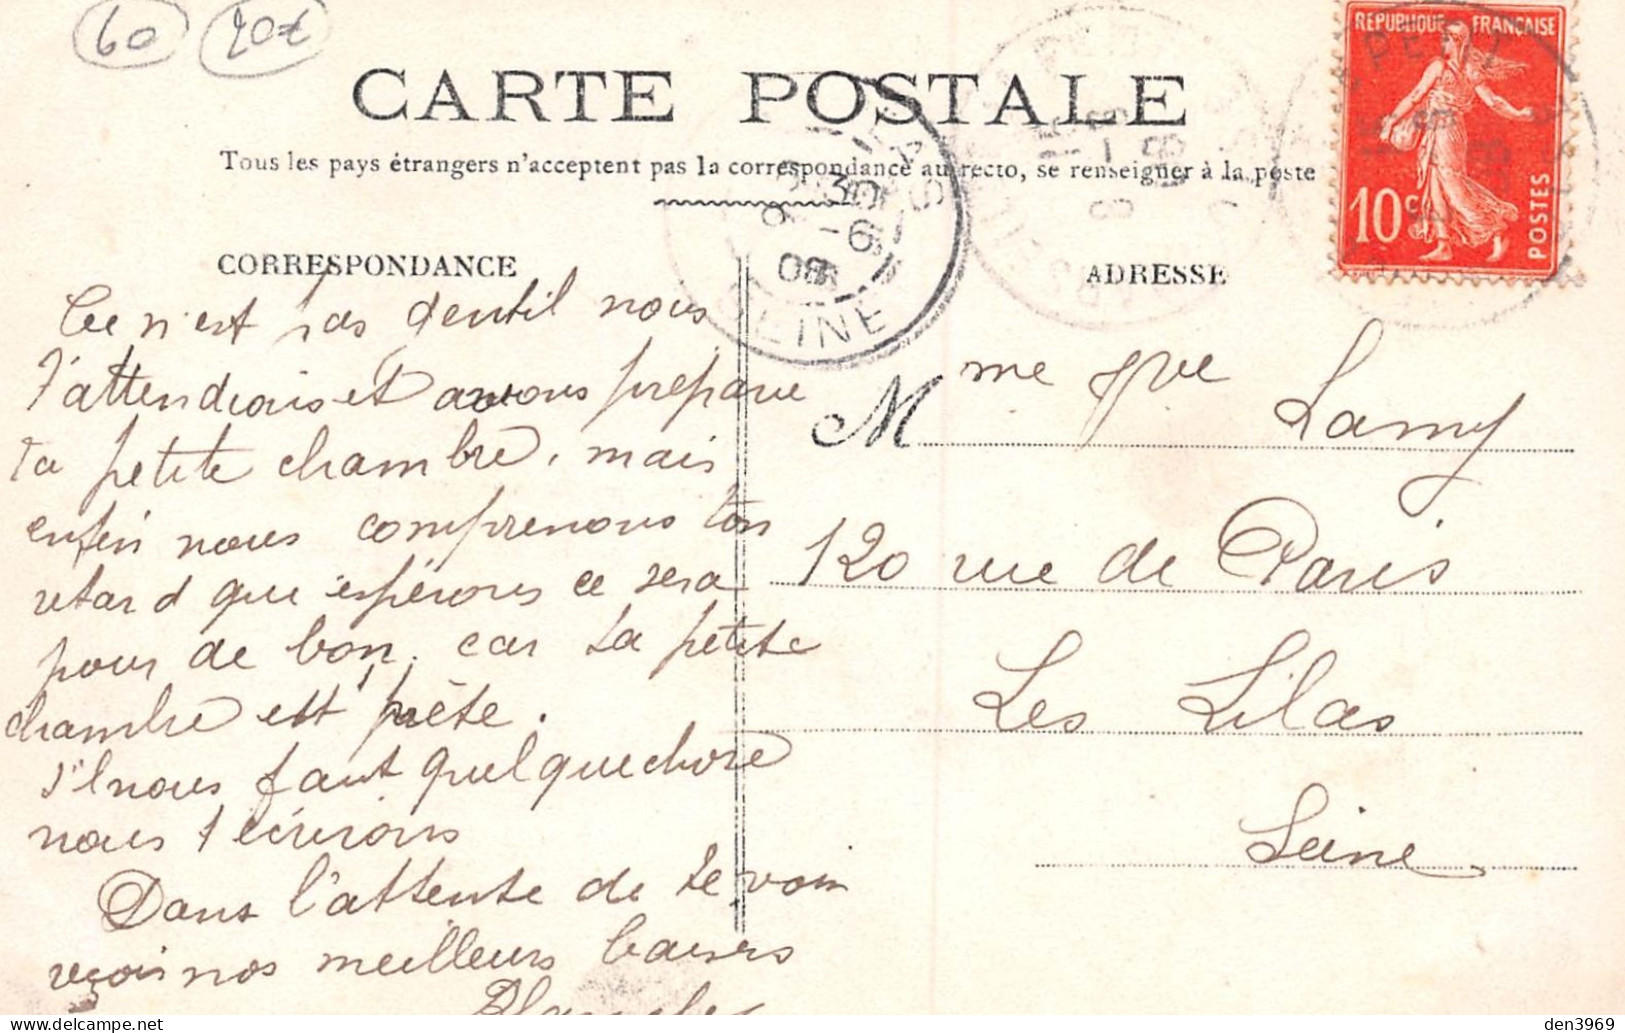 60 20€
REPUBLIQUE FRANÇAISE
10c POSTES
CARTE POSTALE
Tous les pays étrangers n'acceptent pas la correspondance au recto, se renseigner à la poste
LILAS
30
-6
08
SEINE
CORRESPONDANCE
Ce n'est pas gentil nous
t'attendions et avons préparé
ta petite chambre, mais
enfin nous comprenons ton
retard que espérons ce sera
pour de bon, car ta petite
chambre est prête.
S'il nous faut quelque chose
nous t'écrirons
Dans l'attente de te voir
reçois nos meilleurs baisers
Blanche
ADRESSE
Mme Gve Lamy
120 rue de Paris
Les Lilas
Seine
den3969